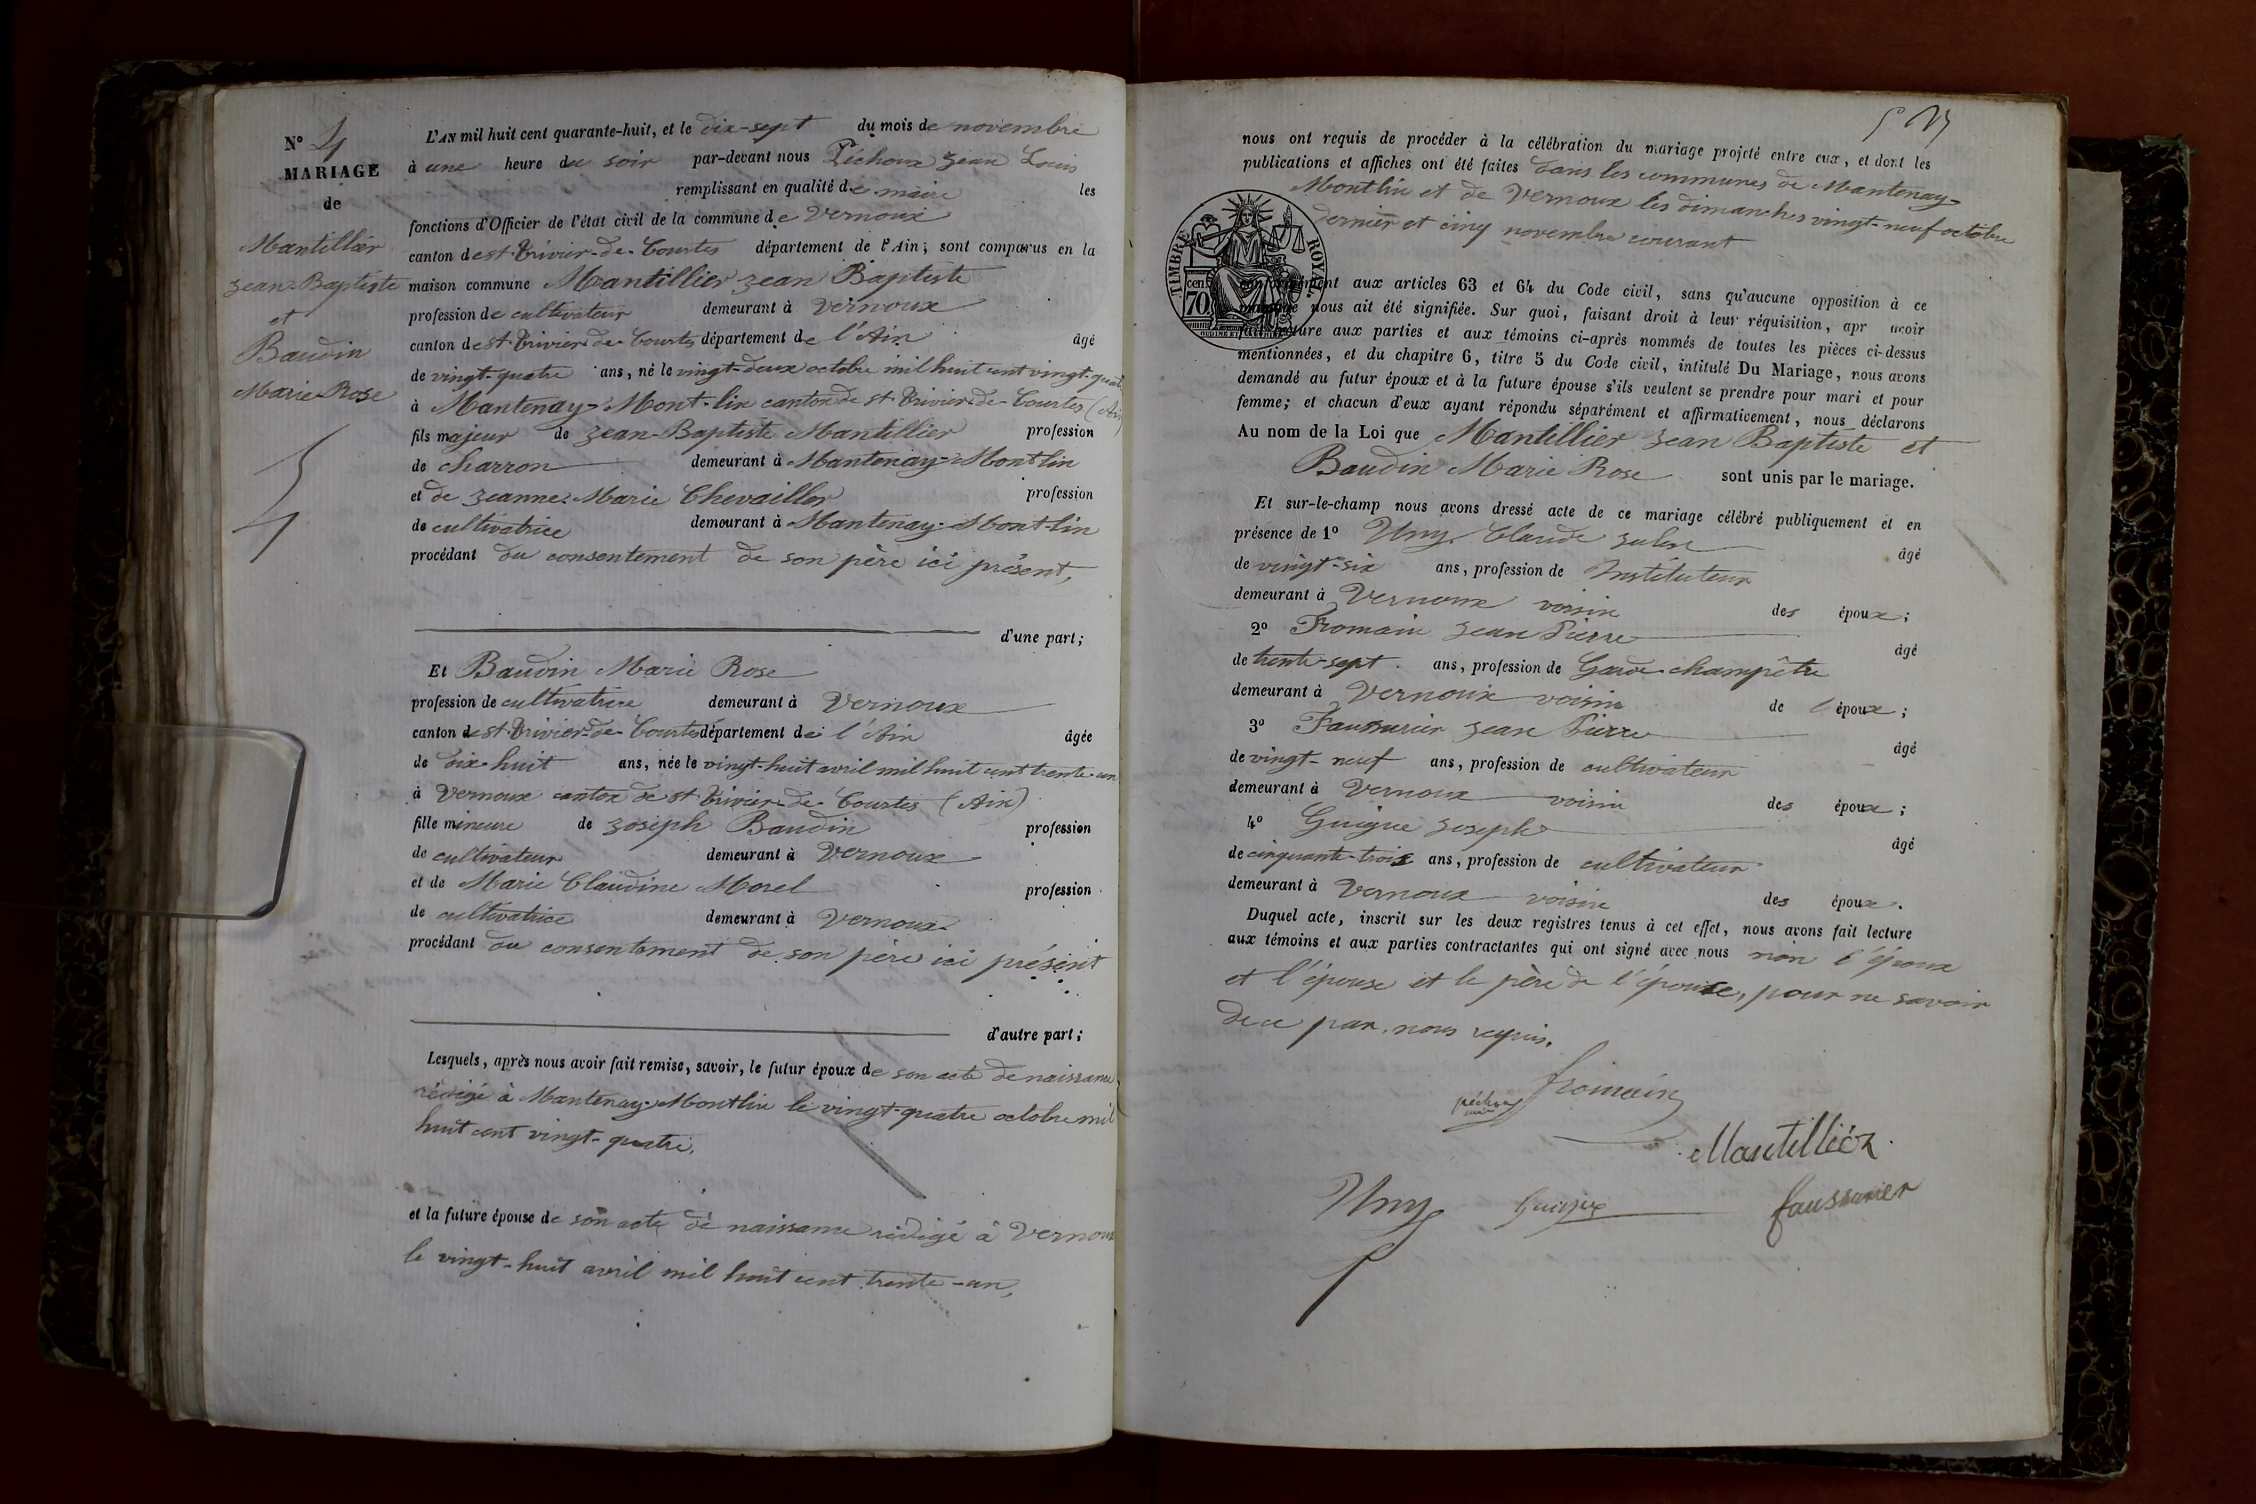 N° 4
MARIAGE
de
Mantillier
Jean-Baptiste
et
Baudin
Marie Rose
L'AN mil huit cent quarante-huit, et le dix-sept du mois de novembre
à une heure du soir par-devant nous Péchoux Jean Louis
remplissant en qualité de maire les
fonctions d'Officier de l'état civil de la commune de Vernoux
canton de St Trivier-de-Courtes département de l'Ain; sont comparus en la
maison commune Mantillier Jean Baptiste
profession de cultivateur demeurant à Vernoux
canton de St Trivier-de-Courtes département de l'Ain âgé
de vingt-quatre ans, né le vingt-deux octobre mil huit cent vingt-quatre
à Mantenay-Mont-lin canton de St Trivier-de-Courtes (Ain)
fils majeur de Jean-Baptiste Mantillier profession
de charron demeurant à Mantenay-Montlin
et de Jeanne-Marie Chevailler profession
de cultivatrice demeurant à Mantenay-Mont-lin
procédant du consentement de son père ici présent,
d'une part;
Et Baudin Marie Rose
profession de cultivatrice demeurant à Vernoux
canton de St Trivier-de-Courtes département de l'Ain âgée
de dix-huit ans, née le vingt-huit avril mil huit cent trente-un
à Vernoux canton de St Trivier-de-Courtes (Ain)
fille mineure de Joseph Baudin profession
de cultivateur demeurant à Vernoux
et de Marie Claudine Morel profession
de cultivatrice demeurant à Vernoux
procédant du consentement de son père ici présent
d'autre part;
Lesquels, après nous avoir fait remise, savoir, le futur époux de son acte de naissance
rédigé à Mantenay-Montlin le vingt-quatre octobre mil
huit cent vingt-quatre,
et la future épouse de son acte de naissance rédigé à Vernoux
le vingt-huit avril mil huit cent trente-un,
nous ont requis de procéder à la célébration du mariage projeté entre eux, et dont les
publications et affiches ont été faites dans les communes de Mantenay-
Montlin et de Vernoux les dimanches vingt-neuf octobre
dernier et cinq novembre courant
TIMBRE ROYAL
cen
70
conformément aux articles 63 et 64 du Code civil, sans qu'aucune opposition à ce
mariage nous ait été signifiée. Sur quoi, faisant droit à leur réquisition, apr avoir
fait lecture aux parties et aux témoins ci-après nommés de toutes les pièces ci-dessus
mentionnées, et du chapitre 6, titre 5 du Code civil, intitulé Du Mariage, nous avons
demandé au futur époux et à la future épouse s'ils veulent se prendre pour mari et pour
femme; et chacun d'eux ayant répondu séparément et affirmativement, nous déclarons
Au nom de la Loi que Mantillier Jean Baptiste et
Baudin Marie Rose sont unis par le mariage.
Et sur-le-champ nous avons dressé acte de ce mariage célébré publiquement et en
présence de 1° Uny Claude Julien âgé
de vingt-six ans, profession de Instituteur
demeurant à Vernoux voisin des époux;
2° Fromain Jean Pierre âgé
de trente-sept ans, profession de Garde-champêtre
demeurant à Vernoux voisin de l'époux;
3° Faussurier Jean Pierre âgé
de vingt-neuf ans, profession de cultivateur
demeurant à Vernoux voisin des époux;
4° Guigue Joseph âgé
de cinquante-trois ans, profession de cultivateur
demeurant à Vernoux voisin des époux.
Duquel acte, inscrit sur les deux registres tenus à cet effet, nous avons fait lecture
aux témoins et aux parties contractantes qui ont signé avec nous non l'époux
et l'épouse et le père de l'épouse, pour ne savoir
de ce par nous requis.
fromain
péchoux
maire
Mantilliér
Uny
Guigue
faussurier